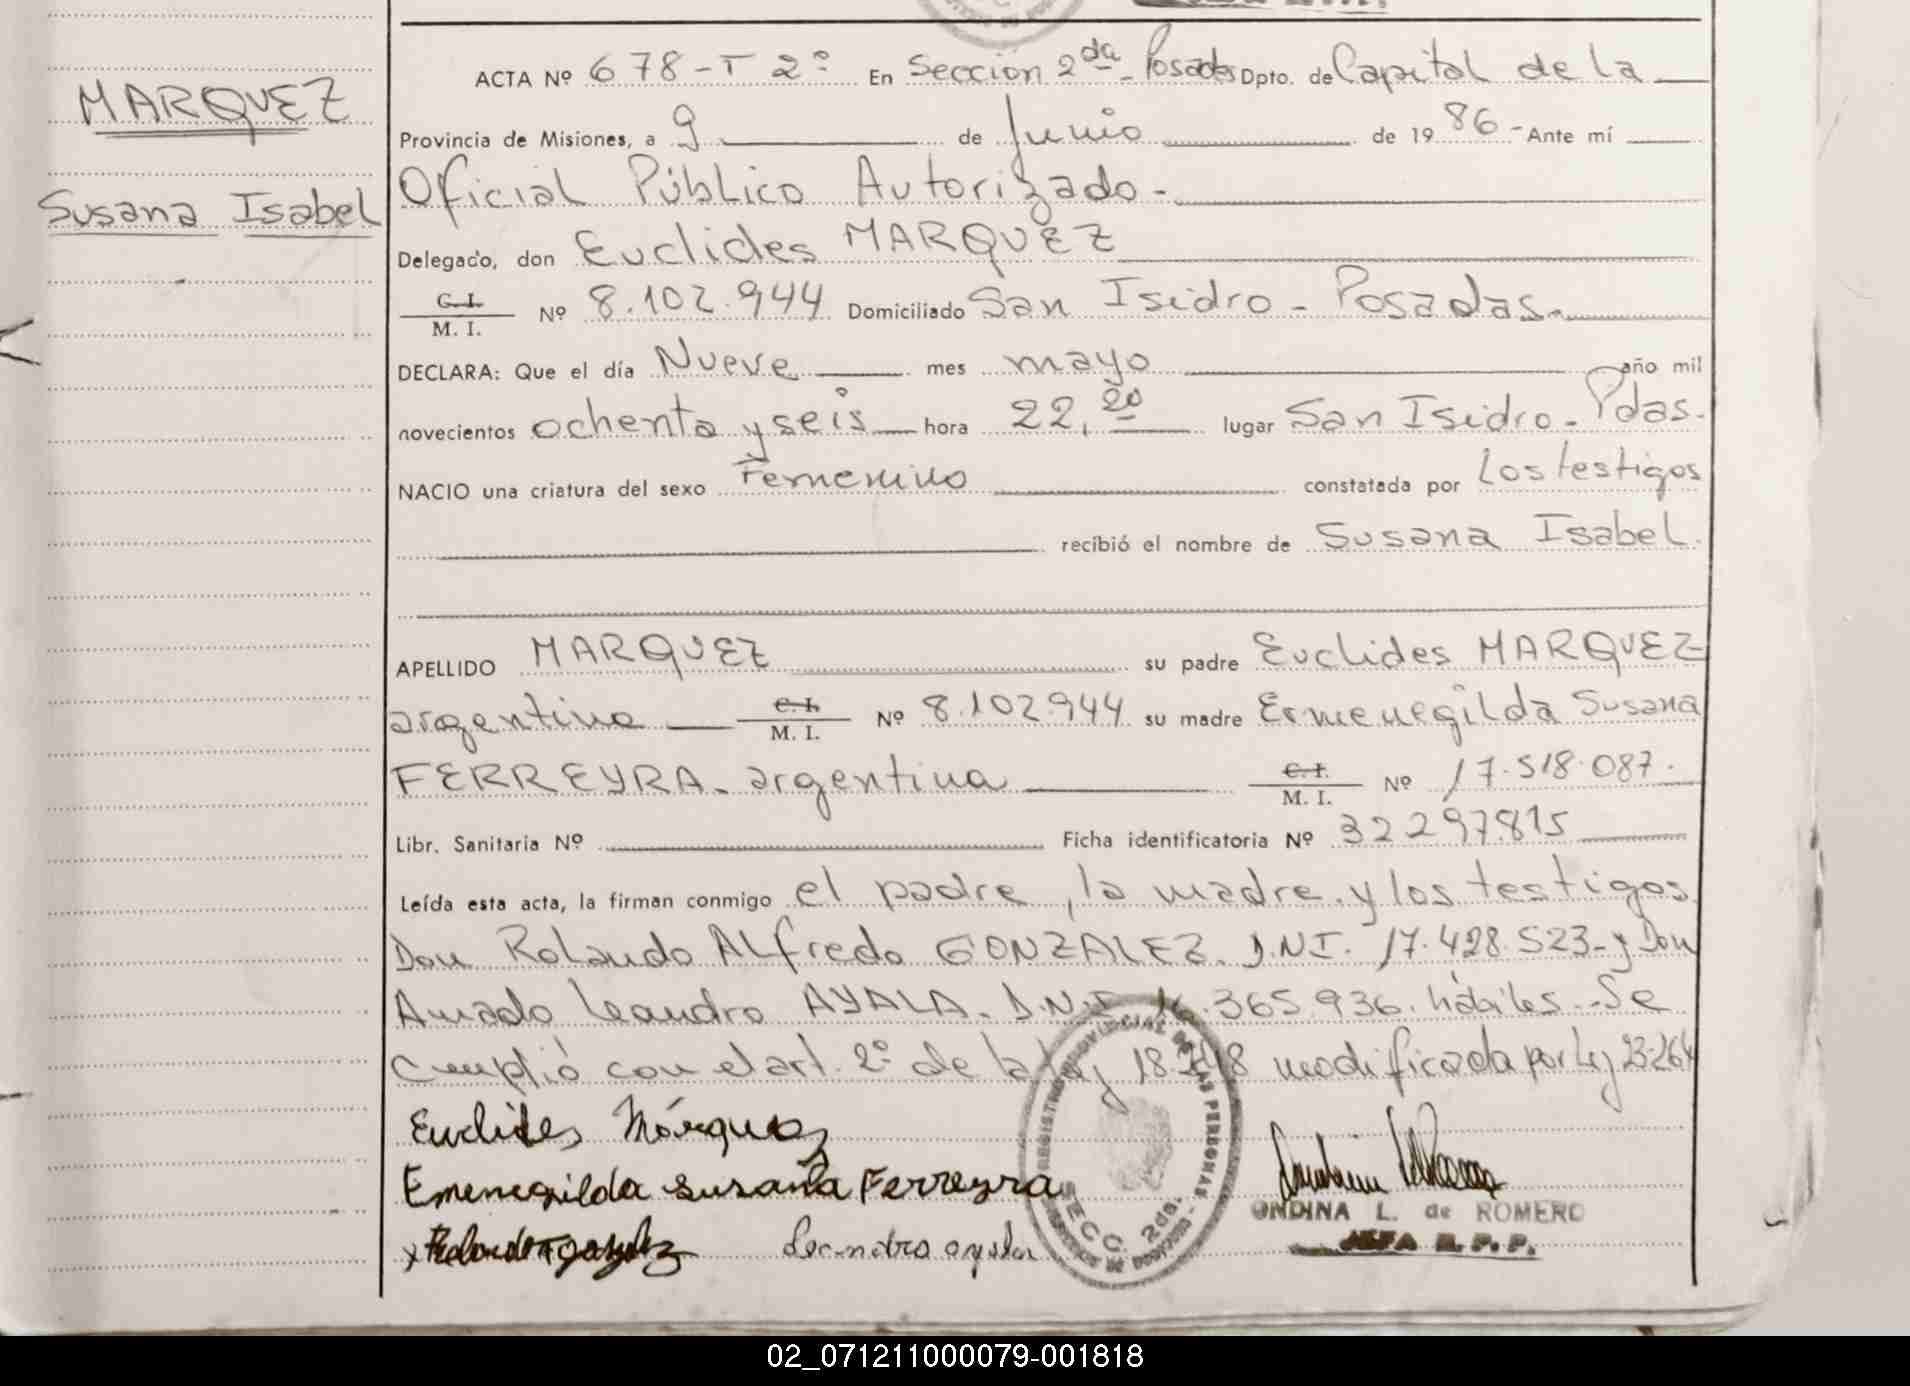 MARQUEZ
Susana Isabel
ACTA Nº 678-T 2º En Sección 2da - Posadas Dpto. de Capital de la
Provincia de Misiones, a 9 de Junio de 1986 - Ante mí
Oficial Público Autorizado -
Delegado, don Euclides MARQUEZ
C. I.
M. I. Nº 8.102.944 Domiciliado San Isidro - Posadas.
DECLARA: Que el día Nueve mes mayo año mil
novecientos ochenta y seis hora 22,20 lugar San Isidro - Pdas.
NACIO una criatura del sexo Femenino constatada por los testigos
recibió el nombre de Susana Isabel.
APELLIDO MARQUEZ su padre Euclides MARQUEZ
argentino C. I. M. I. Nº 8.102.944 su madre Ermenegilda Susana
FERREYRA - argentina C. I. M. I. Nº 17.518.087.
Libr. Sanitaria Nº Ficha identificatoria Nº 32297815
Leída esta acta, la firman conmigo el padre, la madre y los testigos
Don Rolando Alfredo GONZALEZ. D.N.I. 17.428.523 - y Don
Amado Leandro AYALA. D.N.I. 16.365.936. hábiles. - Se
cumplió con el art. 2º de la Ley 18.248 modificada por Ley 23.264
Euclides Márquez
Emenegilda Susana Ferreyra
Leandro ayala
REGISTRO PROVINCIAL DE LAS PERSONAS
SECC. 2da.
ONDINA L. de ROMERO
JEFA R. P. P.
02_071211000079-001818